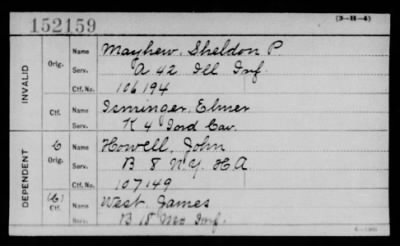 152159 (3-H-4)
INVALID
Orig. Name Mayhew, Sheldon P.
Serv. A 42 Ill Inf.
Ctf. No. 106194
Ctf. Name Isminger, Elmer
Serv. K 4 Iord Cav.
DEPENDENT
C Orig. Name Howell, John
Serv. B 8 N.Y. H A
Ctf. No. 107149
(C) Ctf. Name West, James
Serv. B 18 Mo Inf.